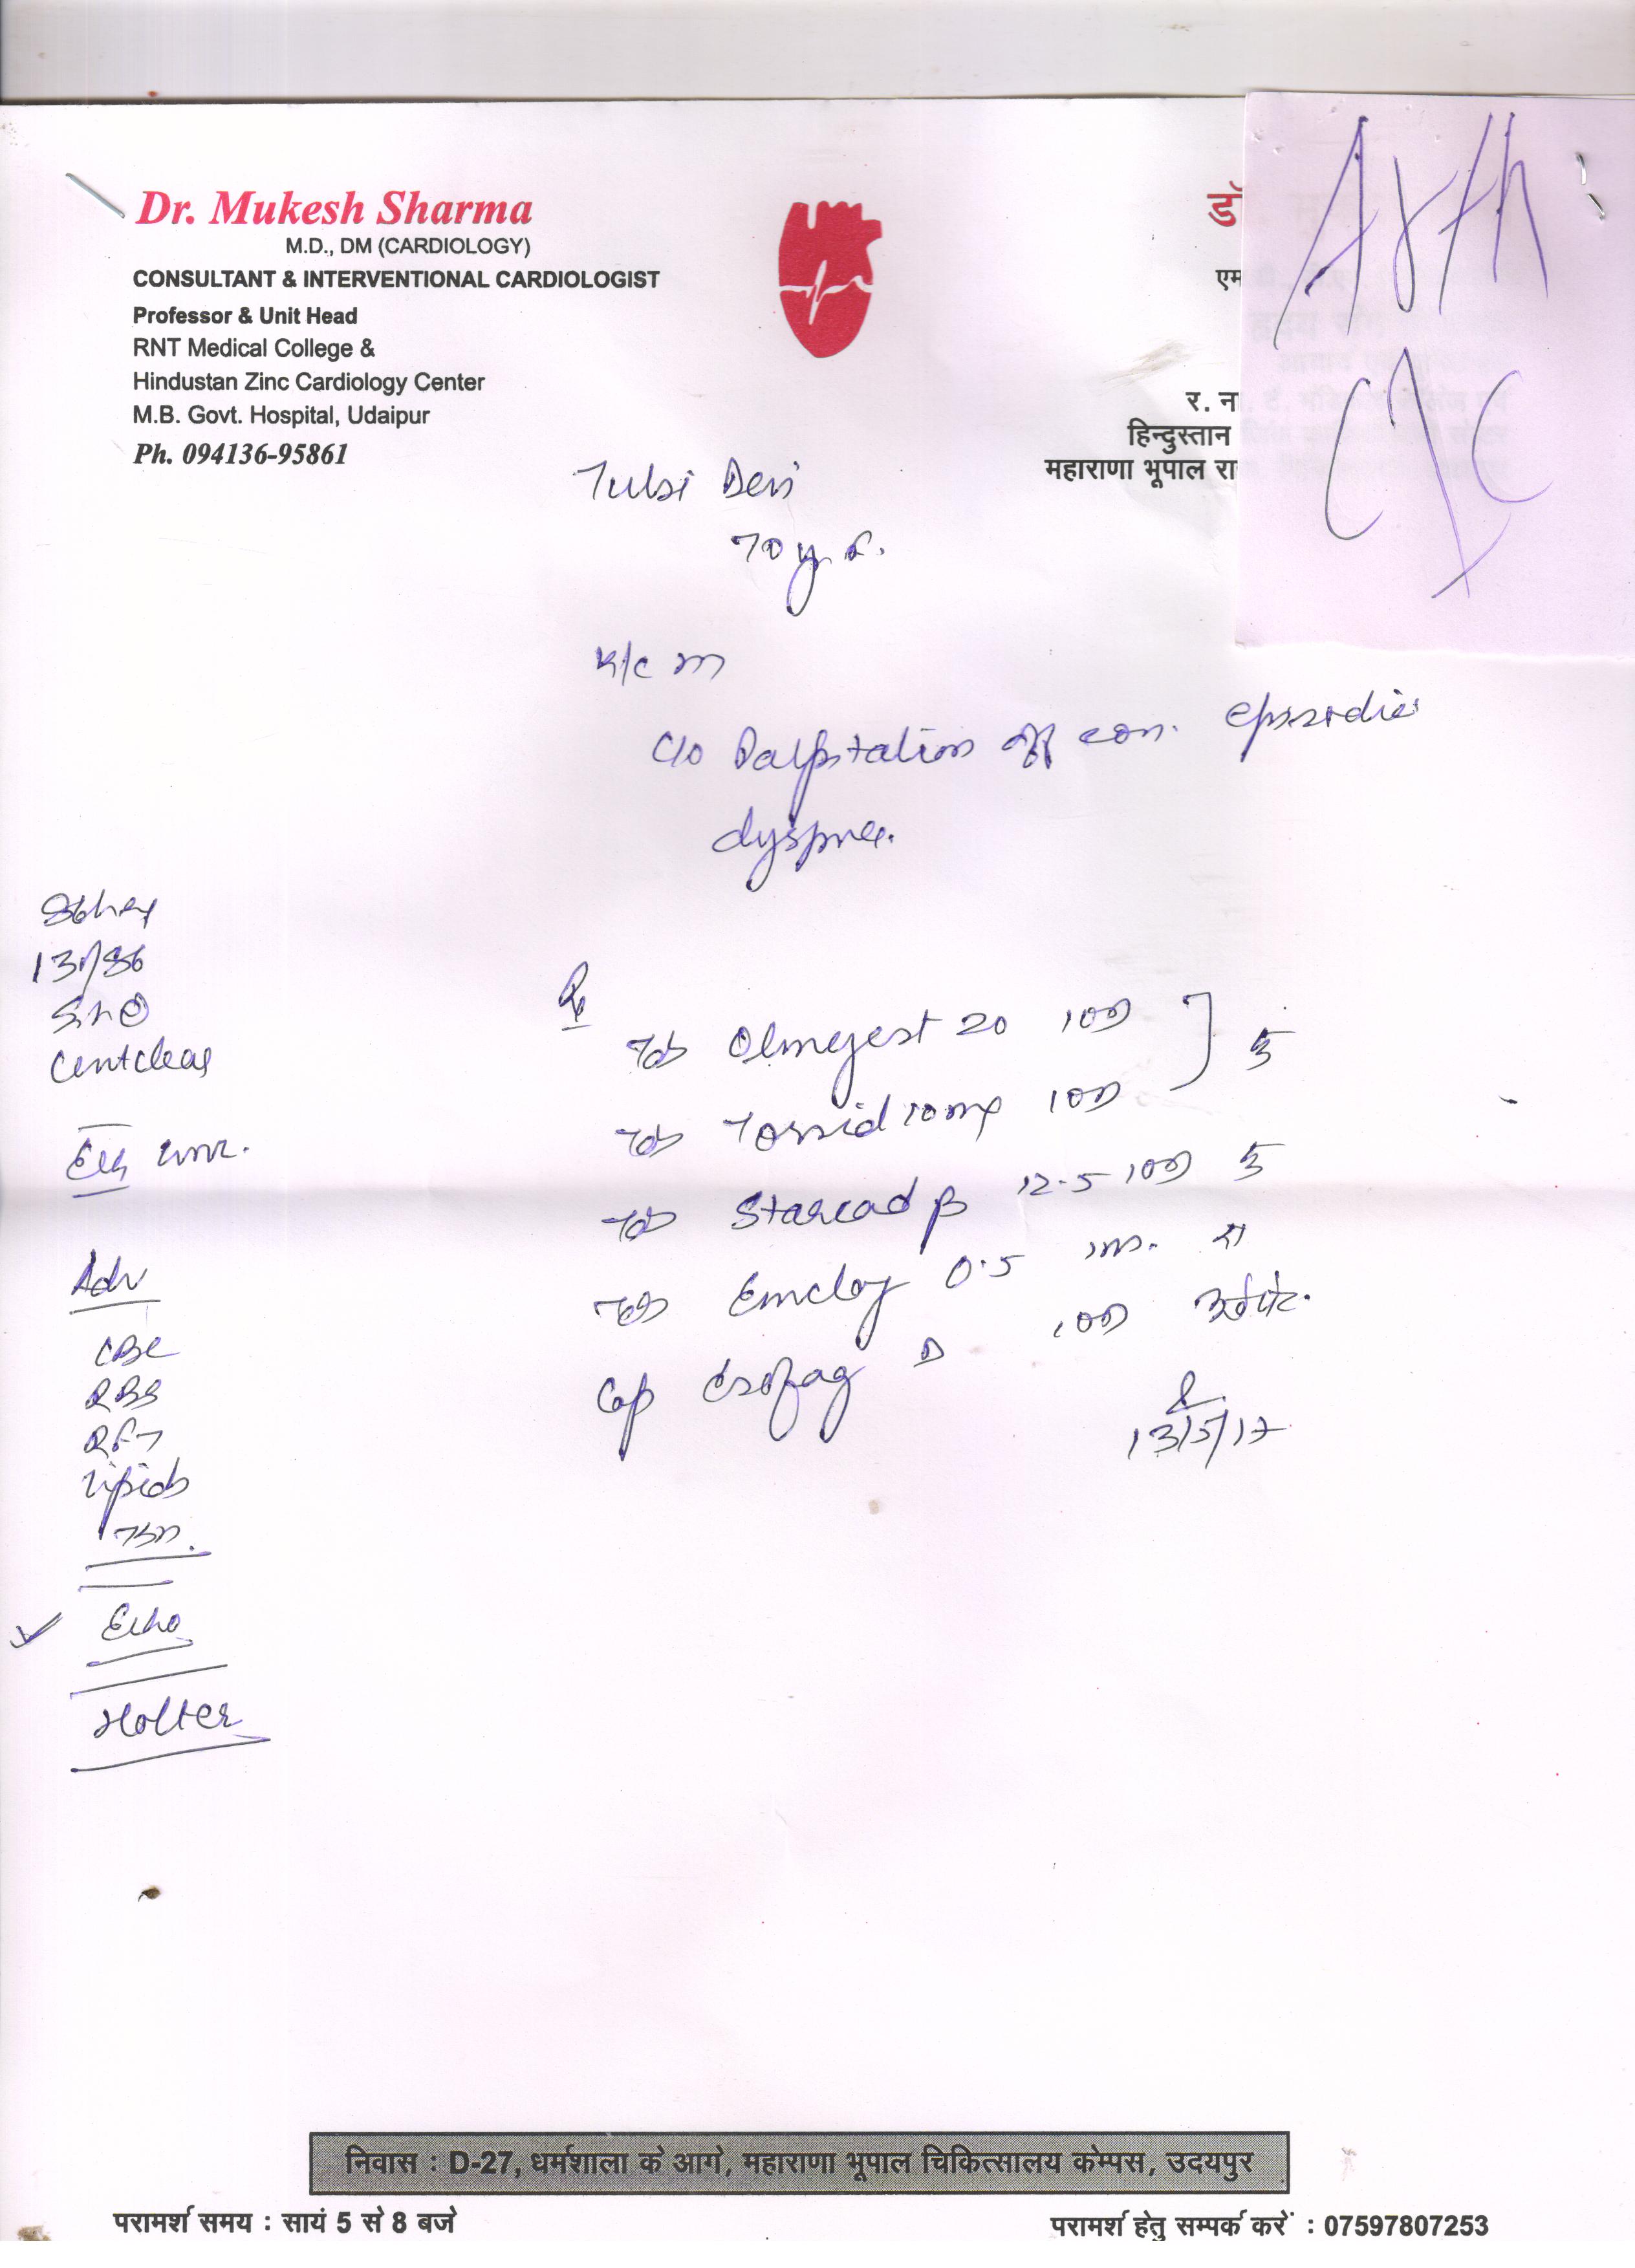 Dr. Mukesh Sharma
M.D., DM (CARDIOLOGY)
CONSULTANT & INTERVENTIONAL CARDIOLOGIST
Professor & Unit Head
RNT Medical College &
Hindustan Zinc Cardiology Center
M.B. Govt. Hospital, Udaipur
Ph. 094136-95861
डॉ
एम
र. ना
हिन्दुस्तान
महाराणा भूपाल रा
Arth
Tulsi Devi
70 y F.
K/c
C/o Palpitation off & on. episodic
dyspnea.
130/86
Chest clear
ECG
Adv
CBC
RBS
RFT
Lipids
Echo
Holter
Rx
Tab 20 1OD
Tab 10mg 1OD
Tab Starcad β 12.5 1OD
Tab 0.5
Cap Esofag D 1OD
13/5/17
निवास : D-27, धर्मशाला के आगे, महाराणा भूपाल चिकित्सालय केम्पस, उदयपुर
परामर्श समय : सायं 5 से 8 बजे
परामर्श हेतु सम्पर्क करें : 07597807253